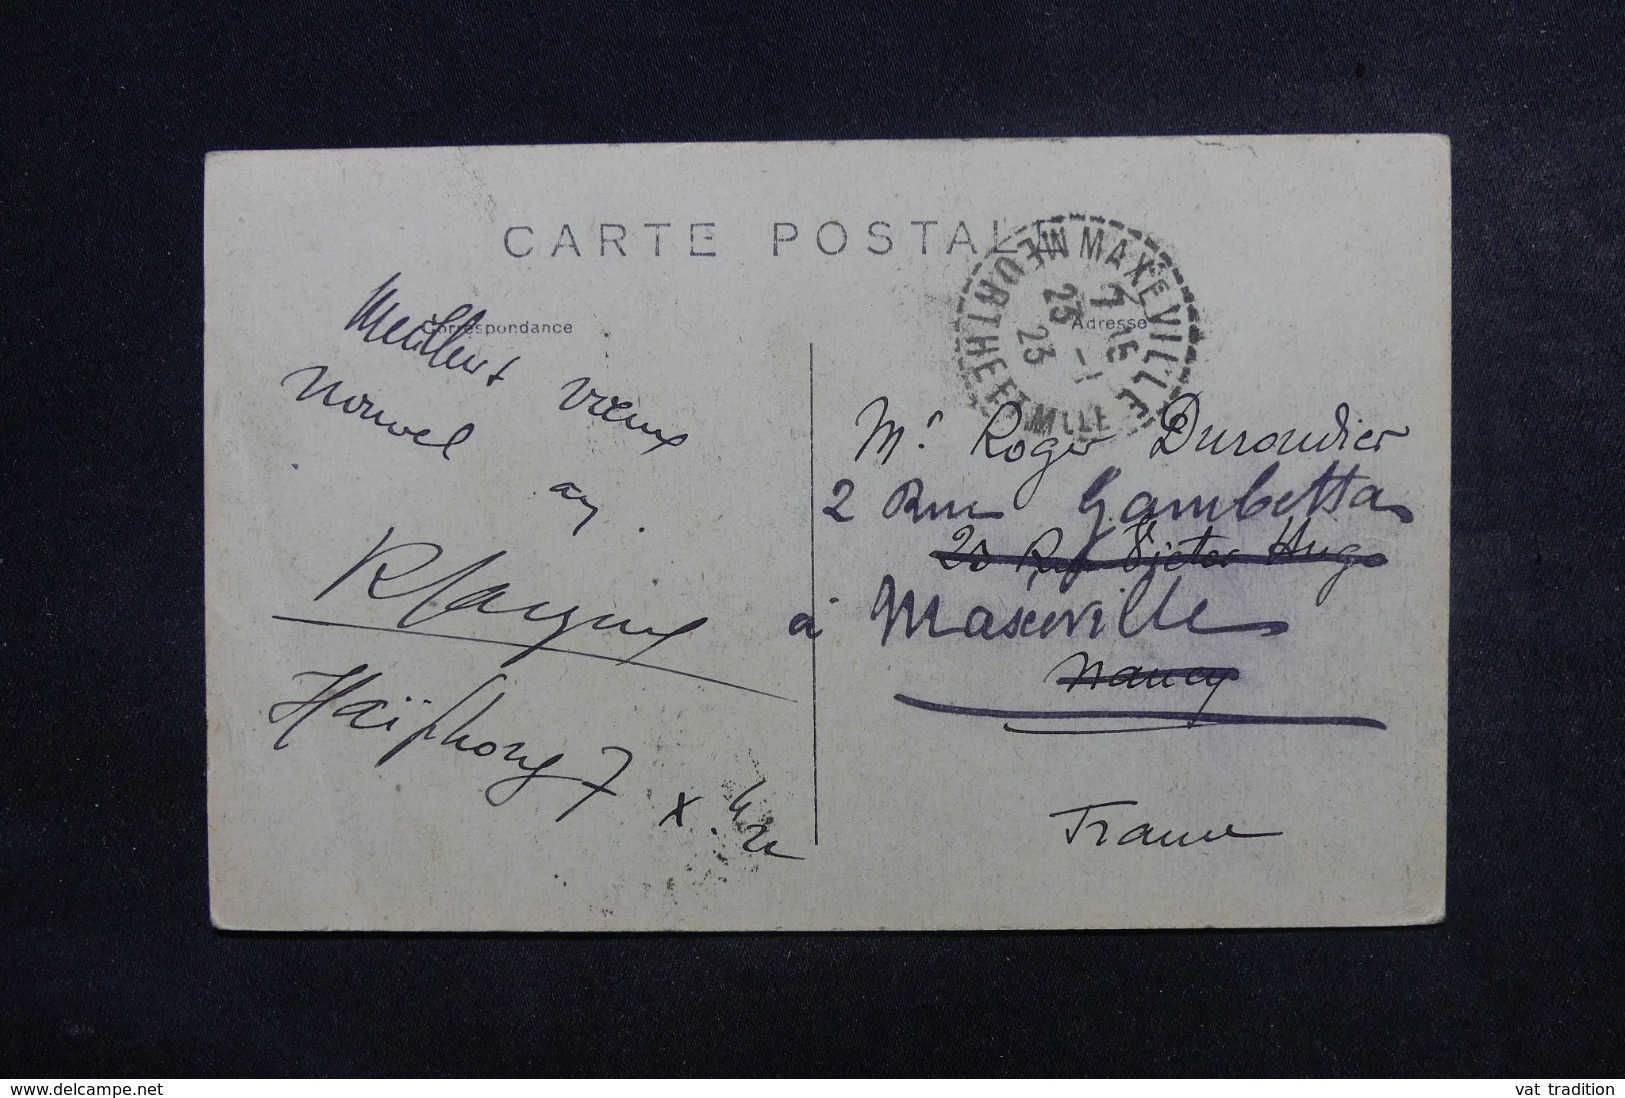 CARTE POSTALE
Correspondance
Adresse
MAXEVILLE
7 15
23 - 1
23
MEURTHE ET MLLE
Meilleurs vœux
Nouvel
an.
Haïphong 7 X
Mr Roger Durondier
2 Rue Gambetta
20 Rue Victor Hugo
à Maxeville
Nancy
France
www.delcampe.net
vat tradition